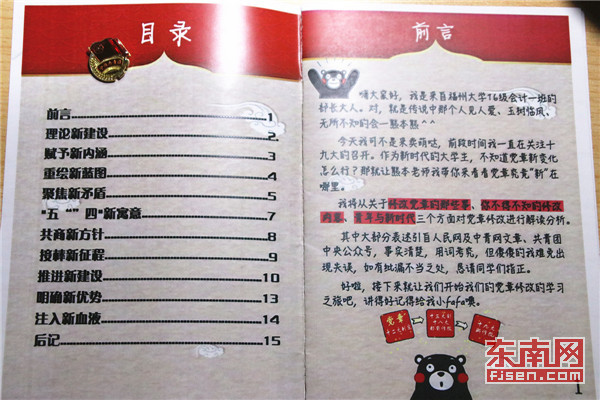 目录
前言 1
理论新建设 2
赋予新内涵 3
重绘新蓝图 4
聚焦新矛盾 5
"五 "" 四"新寓意 7
共商新方针 8
接棒新征程 9
推进新建设 10
明确新优势 13
注入新血液 14
后记 15
前言
嗨大家好，我是来自福州大学16级会计一班的
部长大人。对，就是传说中那个人见人爱、玉树临风、
无所不知的会一熊本熊^^
今天我可不是来卖萌哒，前段时间我一直在关注十
九大的召开。作为新时代的大学生，不知道党章新变化
怎么行？那就让熊本老师我带你来看看党章究竟"新"在
哪里。
我将从关于修改党章的那些事、你不得不知的修改
内容、青年与新时代三个方面对党章修改进行解读分析。
其中大部分表述引自人民网及中青网文章、共青团
中央公众号，事实清楚，用词考究，但傻傻的我难免出
现失误，如有纰漏不当之处，恳请同学们指正。
好啦，接下来就让我们开始我们的党章修改的学习
之旅吧，讲得好记得给我小fafa噢。
党章
十九大
1
东南网
FJSEN.COM